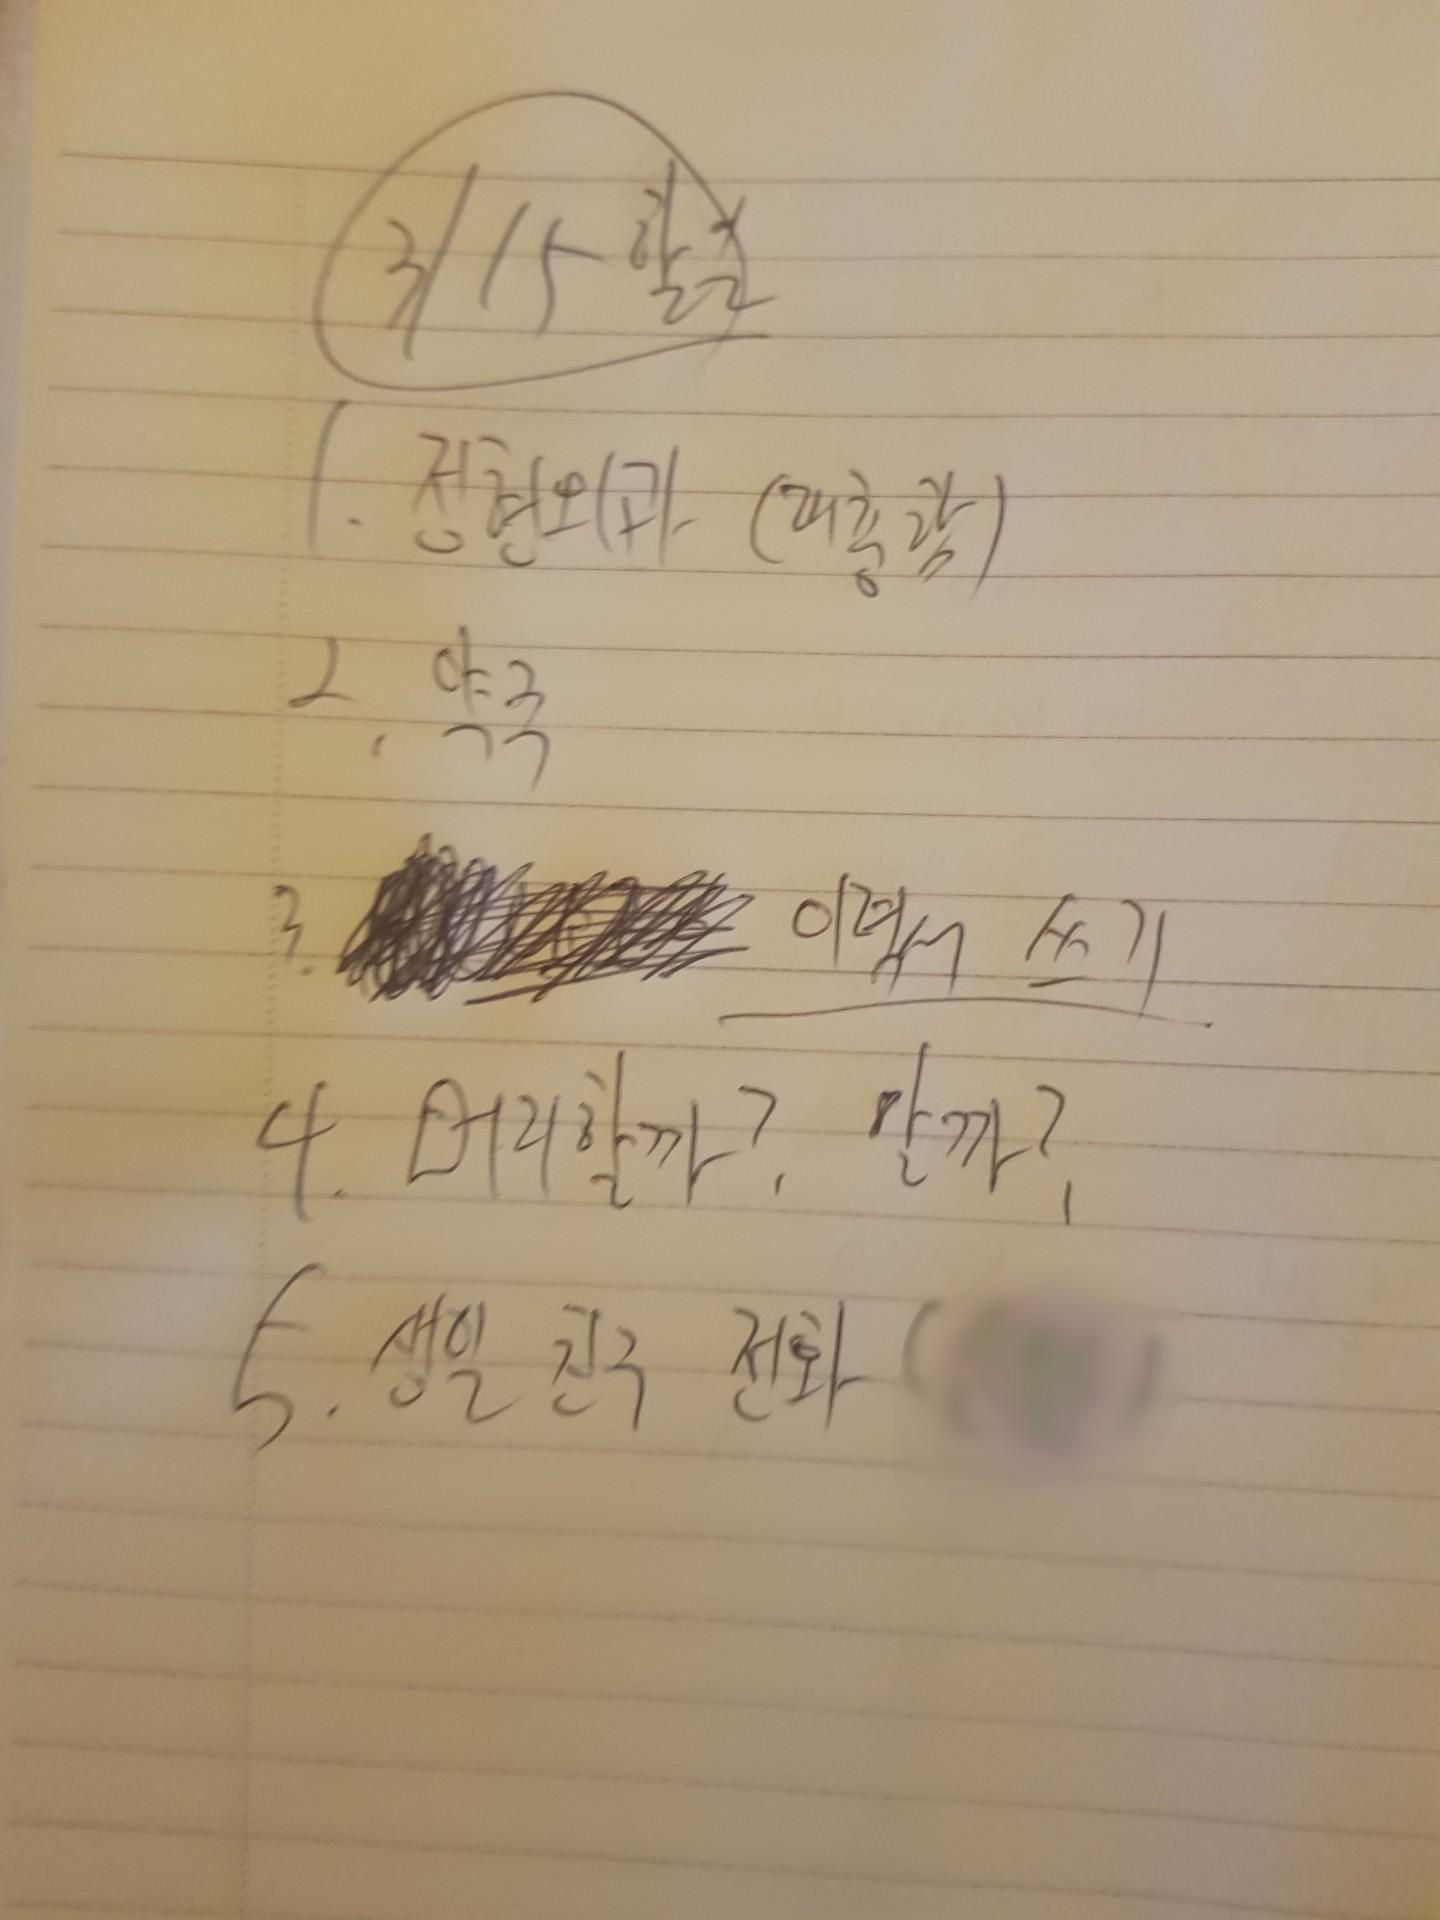 3/15 할일
1. 정형외과 (대흥역)
2. 약국
3. 이력서 쓰기
4. 머리할까? 말까?
5. 생일 친구 전화